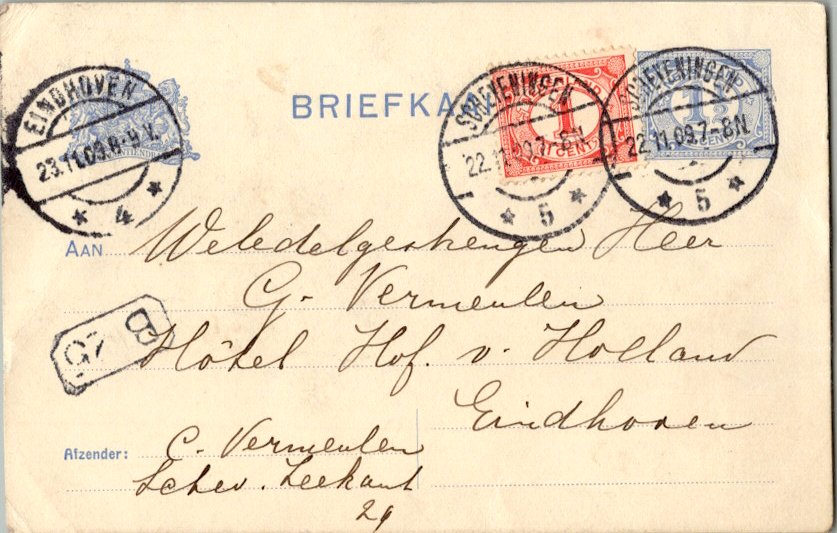 EINDHOVEN
23.11.09.8-9V.
* 4 *
BRIEFKA
SCHEVENINGEN
22.11.09.7-8N
* 5 *
1
CENT
SCHEVENINGEN
22.11.09.7-8N
* 5 *
1
AAN Weledelgestrengen Heer
G. Vermeulen
Hôtel Hof. v. Holland
Eindhoven
GZ B
Afzender: C. Vermeulen
Schev. Zeekant
29